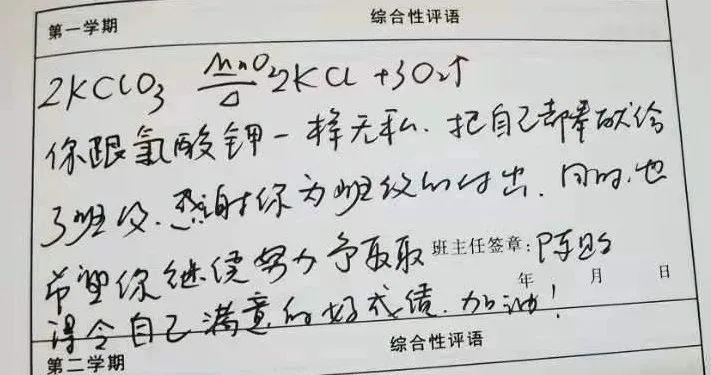 第一学期 综合性评语
2KClO₃ MnO₂ △ 2KCl+3O₂↑
你跟氯酸钾一样无私.把自己都奉献给
了班级.感谢你为班级的付出.同时.也
希望你继续努力争取取 班主任签章:陈
年 月 日
得令自己满意的好成绩.加油!
第二学期 综合性评语